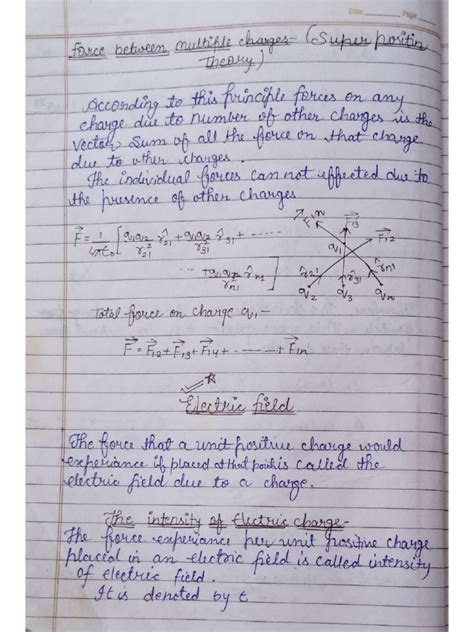 Date: Page
Force between multiple charges- (Super positin
Theory)
According to this principle forces on any
charge due to number of other charges is the
vector sum of all the force on that charge
due to other charges.
The individual forces can not effected due to
the presence of other charges
F⃗ = 1/4πε₀ [q₁q₂/r²₂₁ r̂₂₁ + q₁q₃/r²₃₁ r̂₃₁ + ------
F⃗₁₃
F⃗₁₂
q₁
+ q₁qₙ/r²ₙ₁ r̂ₙ₁]
r̂₂₁ r̂₃₁ r̂ₙ₁
q₂ q₃ qₙ
Total force on charge q₁-
F⃗ = F⃗₁₂ + F⃗₁₃ + F⃗₁₄ + ------- + F⃗₁ₙ
Electric field
The force that a unit positive charge would
experiance if placed at that point is called the
electric field due to a charge.
The intensity of Electric charge-
The force experiance per unit positive charge
placed in an electric field is called intensity
of electric field.
It is denoted by E